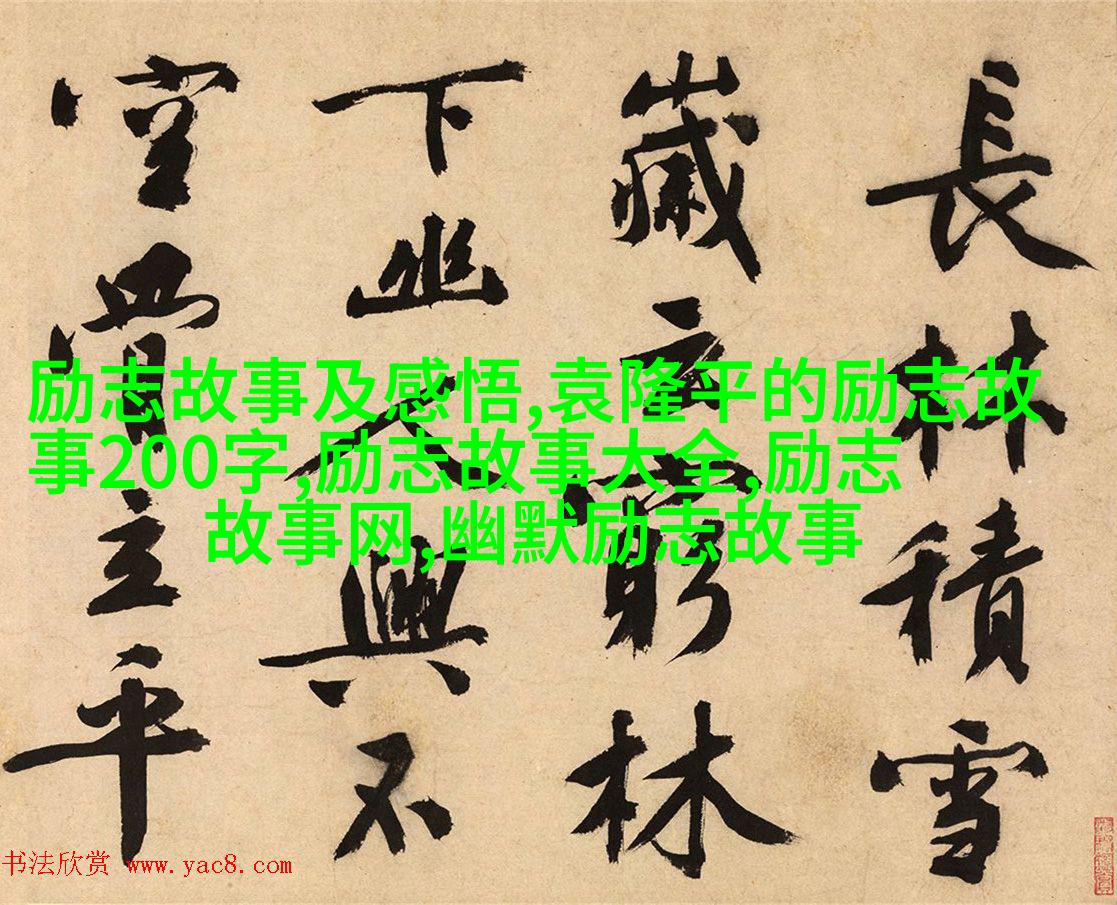 長林積雪
歲云窮林
下幽人興不
空立平
励志故事及感悟,袁隆平的励志故
事200字,励志故事大全,励志
故事网,幽默励志故事
书法欣赏 www.yac8.com